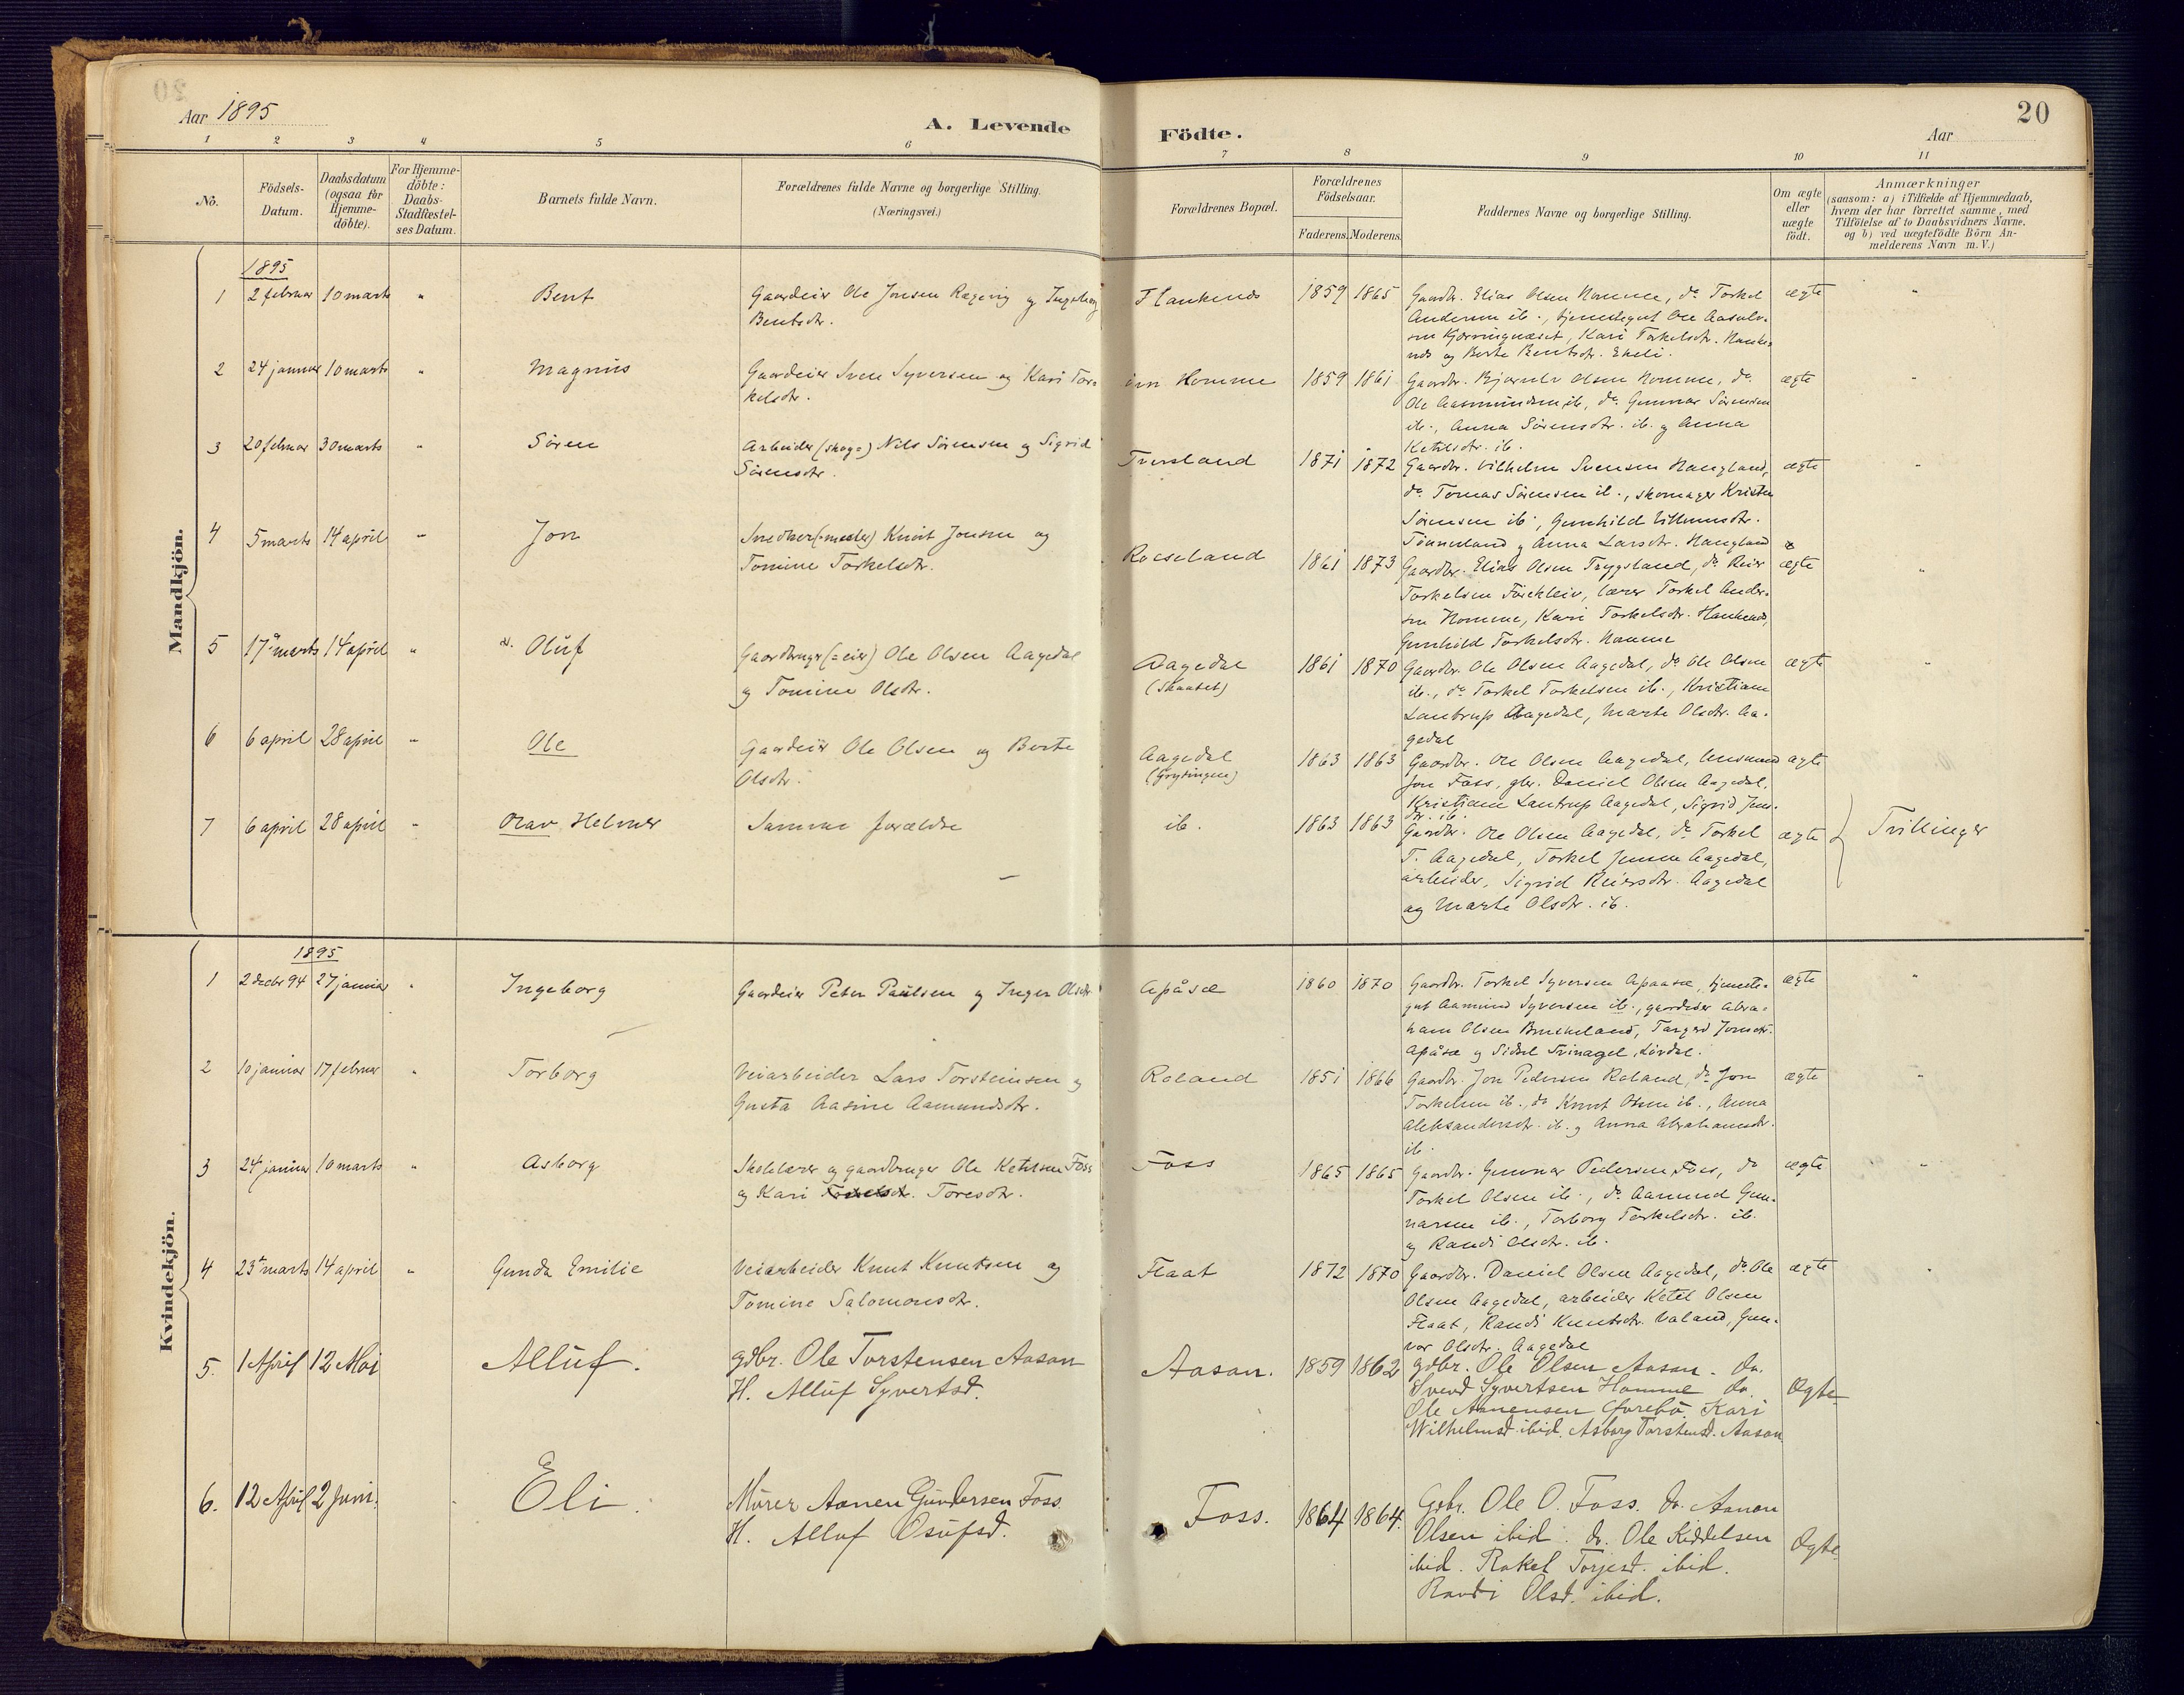 20
Aar 1895
A. Levende Födte.
Aar
1 2 3 4 5 6 7 8 9 10 11
No.
Födsels-
Datum.
Daabsdatum
(ogsaa for
Hjemme-
döbte).
For Hjemme-
döbte:
Daabs-
Stadfæstel-
ses Datum.
Barnets fulde Navn.
Forældrenes fulde Navne og borgerlige Stilling.
(Næringsvei.)
Forældrenes Bopæl.
Forældrenes
Födselsaar.
Faderens. Moderens.
Faddernes Navne og borgerlige Stilling.
Om ægte
eller
uægte
födt.
Anmærkninger
(saasom: a) i Tilfælde af Hjemmedaab,
hvem der har forrettet samme, med
Tilföielse af to Daabsvidners Navne.
og b) ved uægtefödte Börn An-
melderens Navn m. V.)
Mandkjön.
1895
1 2 februar 10 marts " Bent
Gaardeier Ole Jonsen Røgevig og Ingeborg
Bentsdtr.
1859 1865
Gaardbr. Elias Olsen Homme, do Torkel
Andersen ib., tjenestegut Ole Aasulv-
sen Kjørringnæset, Kari Torkelsdtr.
og Berte Bentsdtr. Eheli.
ægte "
2 24 januar 10 marts " Magnus
Gaardeier Sven Syversen og Kari Tor-
kelsdtr.
Homme 1859 1861
Gaardbr. Bjørnulv Olsen Homme, do
Ole Aasmundsen ib, do Gunnar Sørensen
ib., Anna Sørensdtr. ib. og Anna
Ketilsdtr. ib.
ægte "
3 20 februar 30 marts " Søren
Arbeider (skog-) Nils Sørensen og Sigrid
Sørensdtr.
1871 1872
Gaardbr. Vilhelm Svensen Haugland,
do Tomas Sørensen ib., skomager Kristen
Sørensen ib., Gunhild Villumsdtr.
og Anna Larsdtr. Haugland
ægte "
4 5 marts 14 april " Jon
Snedker(-mester) Knut Jonsen og
Tomine Torkelsdtr.
Roeseland 1861 1873
Gaardbr. Elias Olsen Trygsland, do Reier
Torkelsen lærer Torkel Ander-
sen Homme, Kari Torkelsdtr.
Gunhild Torkelsdtr. Homme
ægte "
5 17 marts 14 april " Oluf
Gaardbruger(=eier) Ole Olsen Aagedal
og Tomine Olsdtr.
Aagedal
(Skaatet)
1861 1870
Gaardbr. Ole Olsen Aagedal, do Ole Olsen
ib., do Torkel Torkelsen ib., Kristiane
Lantrup Aagedal, Marte Olsdtr. Aa-
gedal
ægte "
6 6 april 28 april " Ole
Gaardeier Ole Olsen og Berte
Olsdtr.
Aagedal
(Grydingen)
1863 1863
Gaardbr. Ole Olsen Aagedal, husmand
Jon Foss, gbr. Daniel Olsen Aagedal,
Kristiane Lantrup Aagedal, Sigrid Jons-
dtr. ib.
ægte
7 6 april 28 april " Olav Helmer
Samme forældre
ib. 1863 1863
Gaardbr. Ole Olsen Aagedal, do Torkel
T. Aagedal, Torkel Jensen Aagedal,
arbeider, Sigrid Reiersdtr. Aagedal
og Marte Olsdtr. ib.
ægte Tvillinger
Kvindekjön.
1895
1 2 decbr 94 27 januar " Ingeborg
Gaardeier Peter Paulsen og Inger Olsdtr
Apåsæ 1860 1870
Gaardbr. Torkel Syversen Apaasæ, tjeneste-
gut Aamund Syversen ib., gaardeier Abra-
ham Olsen Bruskeland, Targerd Jonsdtr.
Apåsæ og Sidsel
ægte "
2 10 januar 17 februar " Torborg
Veiarbeider Lars Torsteinsen og
Gusta Aasine Aamundsdtr.
Røland 1851 1866
Gaardbr. Jon Pedersen Røland, do Jon
Torkelsen ib., do Knut Olsen ib., Anna
Aleksandersdtr. ib. og Anna Abrahamsdtr.
ib.
ægte "
3 24 januar 10 marts " Asborg
Skolelærer og gaardbruger Ole Ketilsen Foss
og Kari Toresdtr.
Foss 1865 1865
Gaardbr. Gunnar Pedersen Foss, do
Torkel Olsen ib., do Aamund Gun-
narsen ib., Torborg Torkelsdtr. ib.
og Randi Olsdtr. ib.
ægte "
4 23 marts 14 april " Gunda Emilie
Veiarbeider Knut Knutsen og
Tomine Salomonsdtr.
Flaat 1872 1870
Gaardbr. Daniel Olsen Aagedal, do Ole
Olsen Aagedal, arbeider Ketel Olsen
Flaat, Randi Knutsdtr. Valand, Gun-
vor Olsdtr. Aagedal
ægte "
5. 1 April 12 Mai Alluf.
gdbr. Ole Torstensen Aasan
H. Alluf Syvertsd.
Aasan. 1859 1862
gdbr. Ole Olsen Aasan. do.
Svend Syvertsen Homme do.
Ole Aanensen Kari
Wilhelmsd. ibid. Asborg Torstensd. Aasan.
Ægte
6. 12 April 2 Juni. Eli.
Mürer Aanen Gundersen Foss.
H. Alluf Osufsd.
Foss. 1864 1864.
Gdbr. Ole O. Foss. do. Aanon
Olsen ibid. do. Ole Kiddelsen
ibid. Rakel Torjesd. ibid.
Randi Olsd. ibid.
Ægte